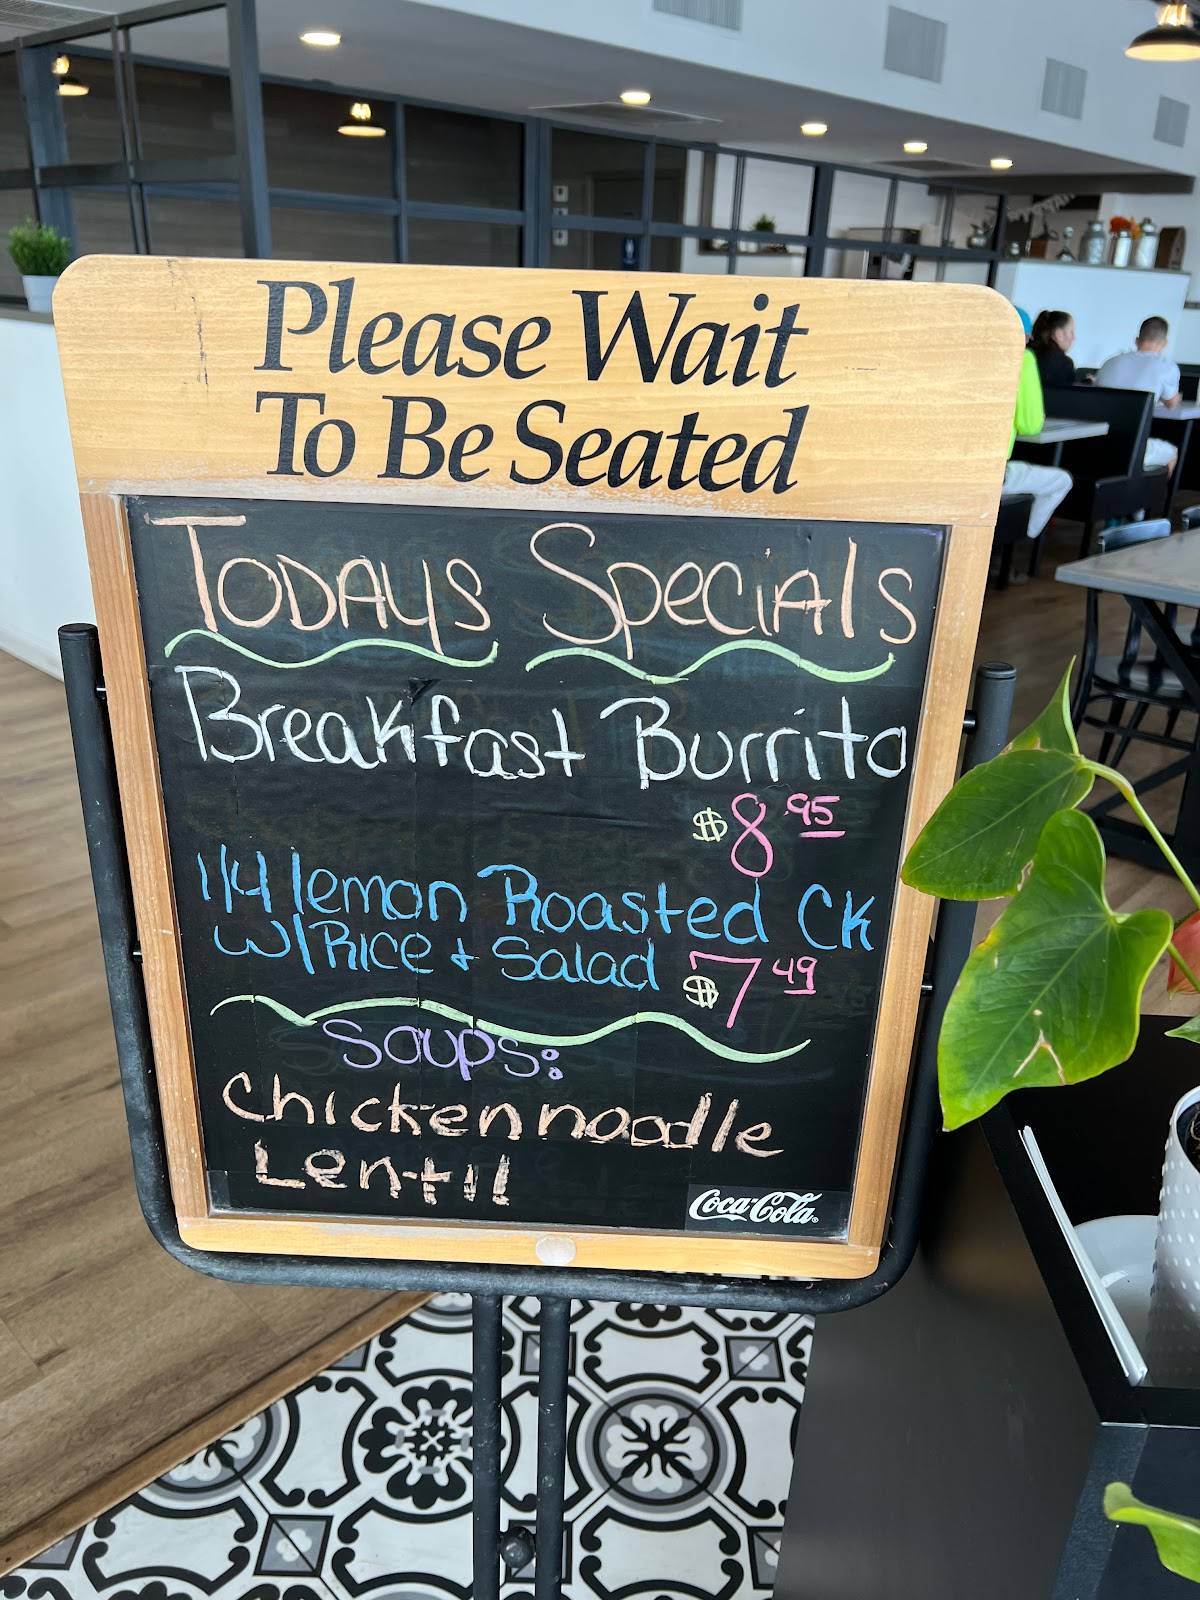 Please Wait
To Be Seated
Todays Specials
Breakfast Burrito
$8.95
1/4 lemon Roasted CK
w/Rice + Salad $7 49
Soups:
Chicken noodle
Lentil
Coca-Cola